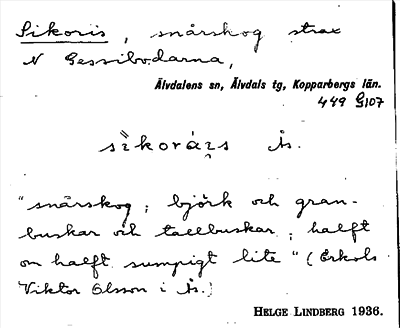 Sikoris, snårskog strax
N Gessibodarna,
Älvdalens sn, Älvdals tg, Kopparbergs län.
449 G107
ås.
"snårskog; björk och gran-
buskar och tallbuskar; halft
om halft sumpigt lite" (Erkols
Viktor Olsson i ås.)
HELGE LINDBERG 1936.